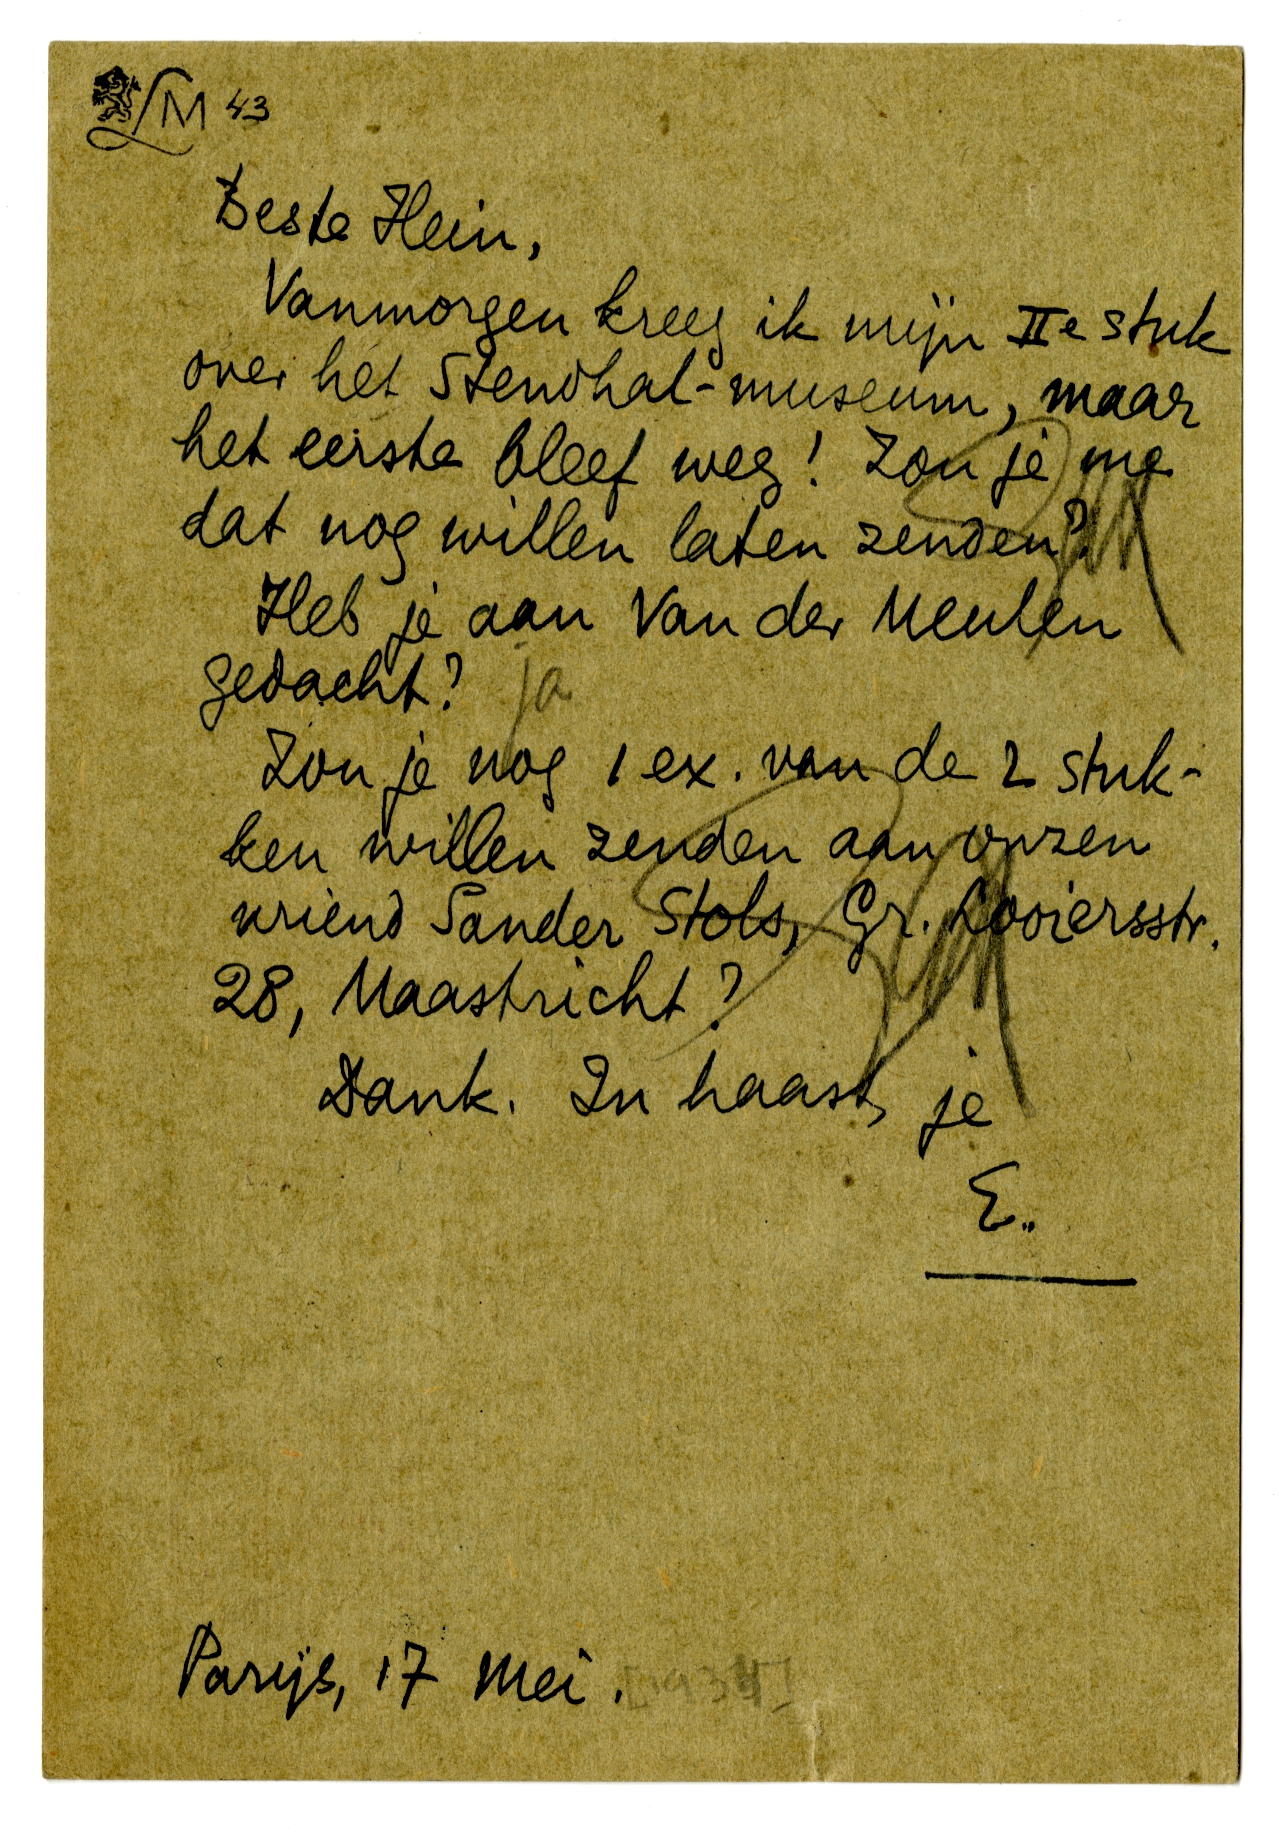 LM 43
Beste Hein,
Vanmorgen kreeg ik mijn IIe stuk
over het Stendhal-museum, maar
het eerste bleef weg! Zou je me
dat nog willen laten zenden?
Heb je aan Van der Meulen
gedacht? ja
Zou je nog 1 ex. van de 2 stuk-
ken willen zenden aan onzen
vriend Sander Stols, Gr. Looiersstr.
28, Maastricht?
Dank. In haast, je
E.
Parijs, 17 Mei.